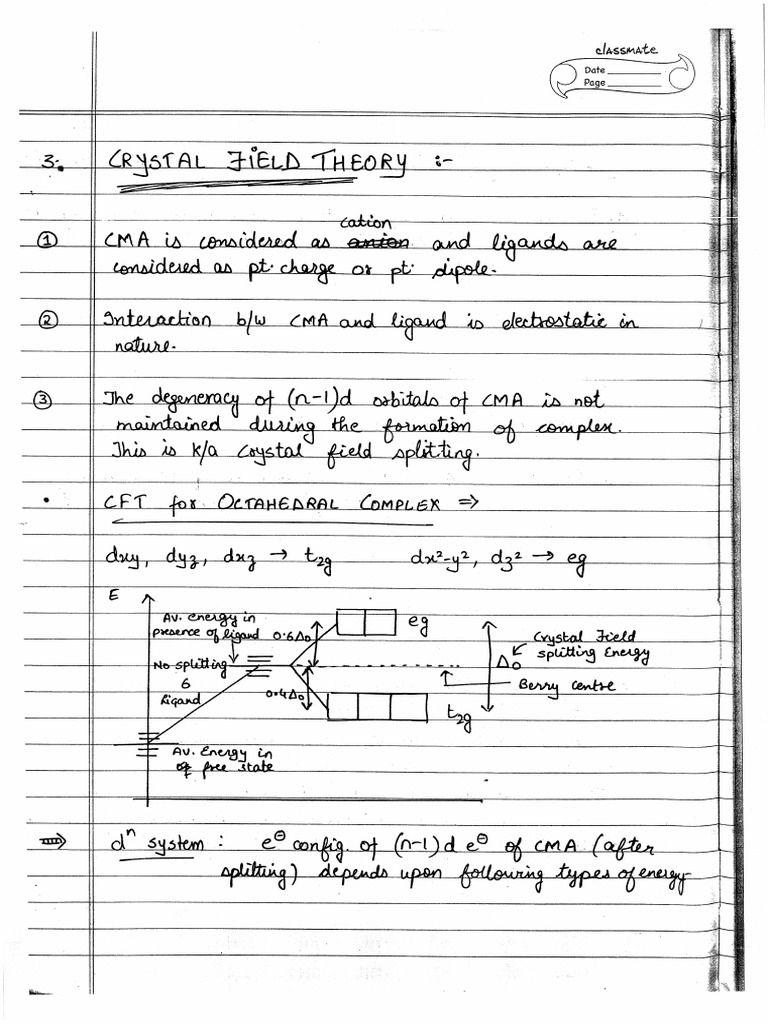 classmate
Date
Page
3. CRYSTAL FIELD THEORY :-
cation
① CMA is considered as anion and ligands are
considered as pt. charge or pt. dipole.
② Interaction b/w CMA and ligand is electrostatic in
nature.
③ The degeneracy of (n-1)d orbitals of CMA is not
maintained during the formation of complex.
This is k/a crystal field splitting.
• CFT for OCTAHEDRAL COMPLEX ⇒
dxy, dyz, dxz → t₂g dx²-y², dz² → eg
E
Av. energy in
presence of ligand
0.6Δ₀
eg
Crystal Field
splitting Energy
No splitting
6
ligand
Δ₀
0.4Δ₀
Berry centre
t₂g
Av. Energy in
of free state
⇒ dⁿ system : e⊖ config. of (n-1)d e⊖ of CMA (after
splitting) depends upon following types of energy